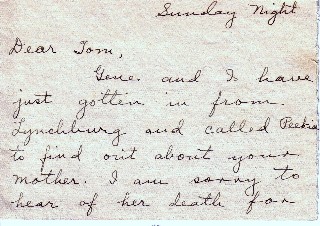 Sunday Night
Dear Tom,
Gene and I have
just gotten in from
Lynchburg and called
to find out about your
mother. I am sorry to
hear of her death for